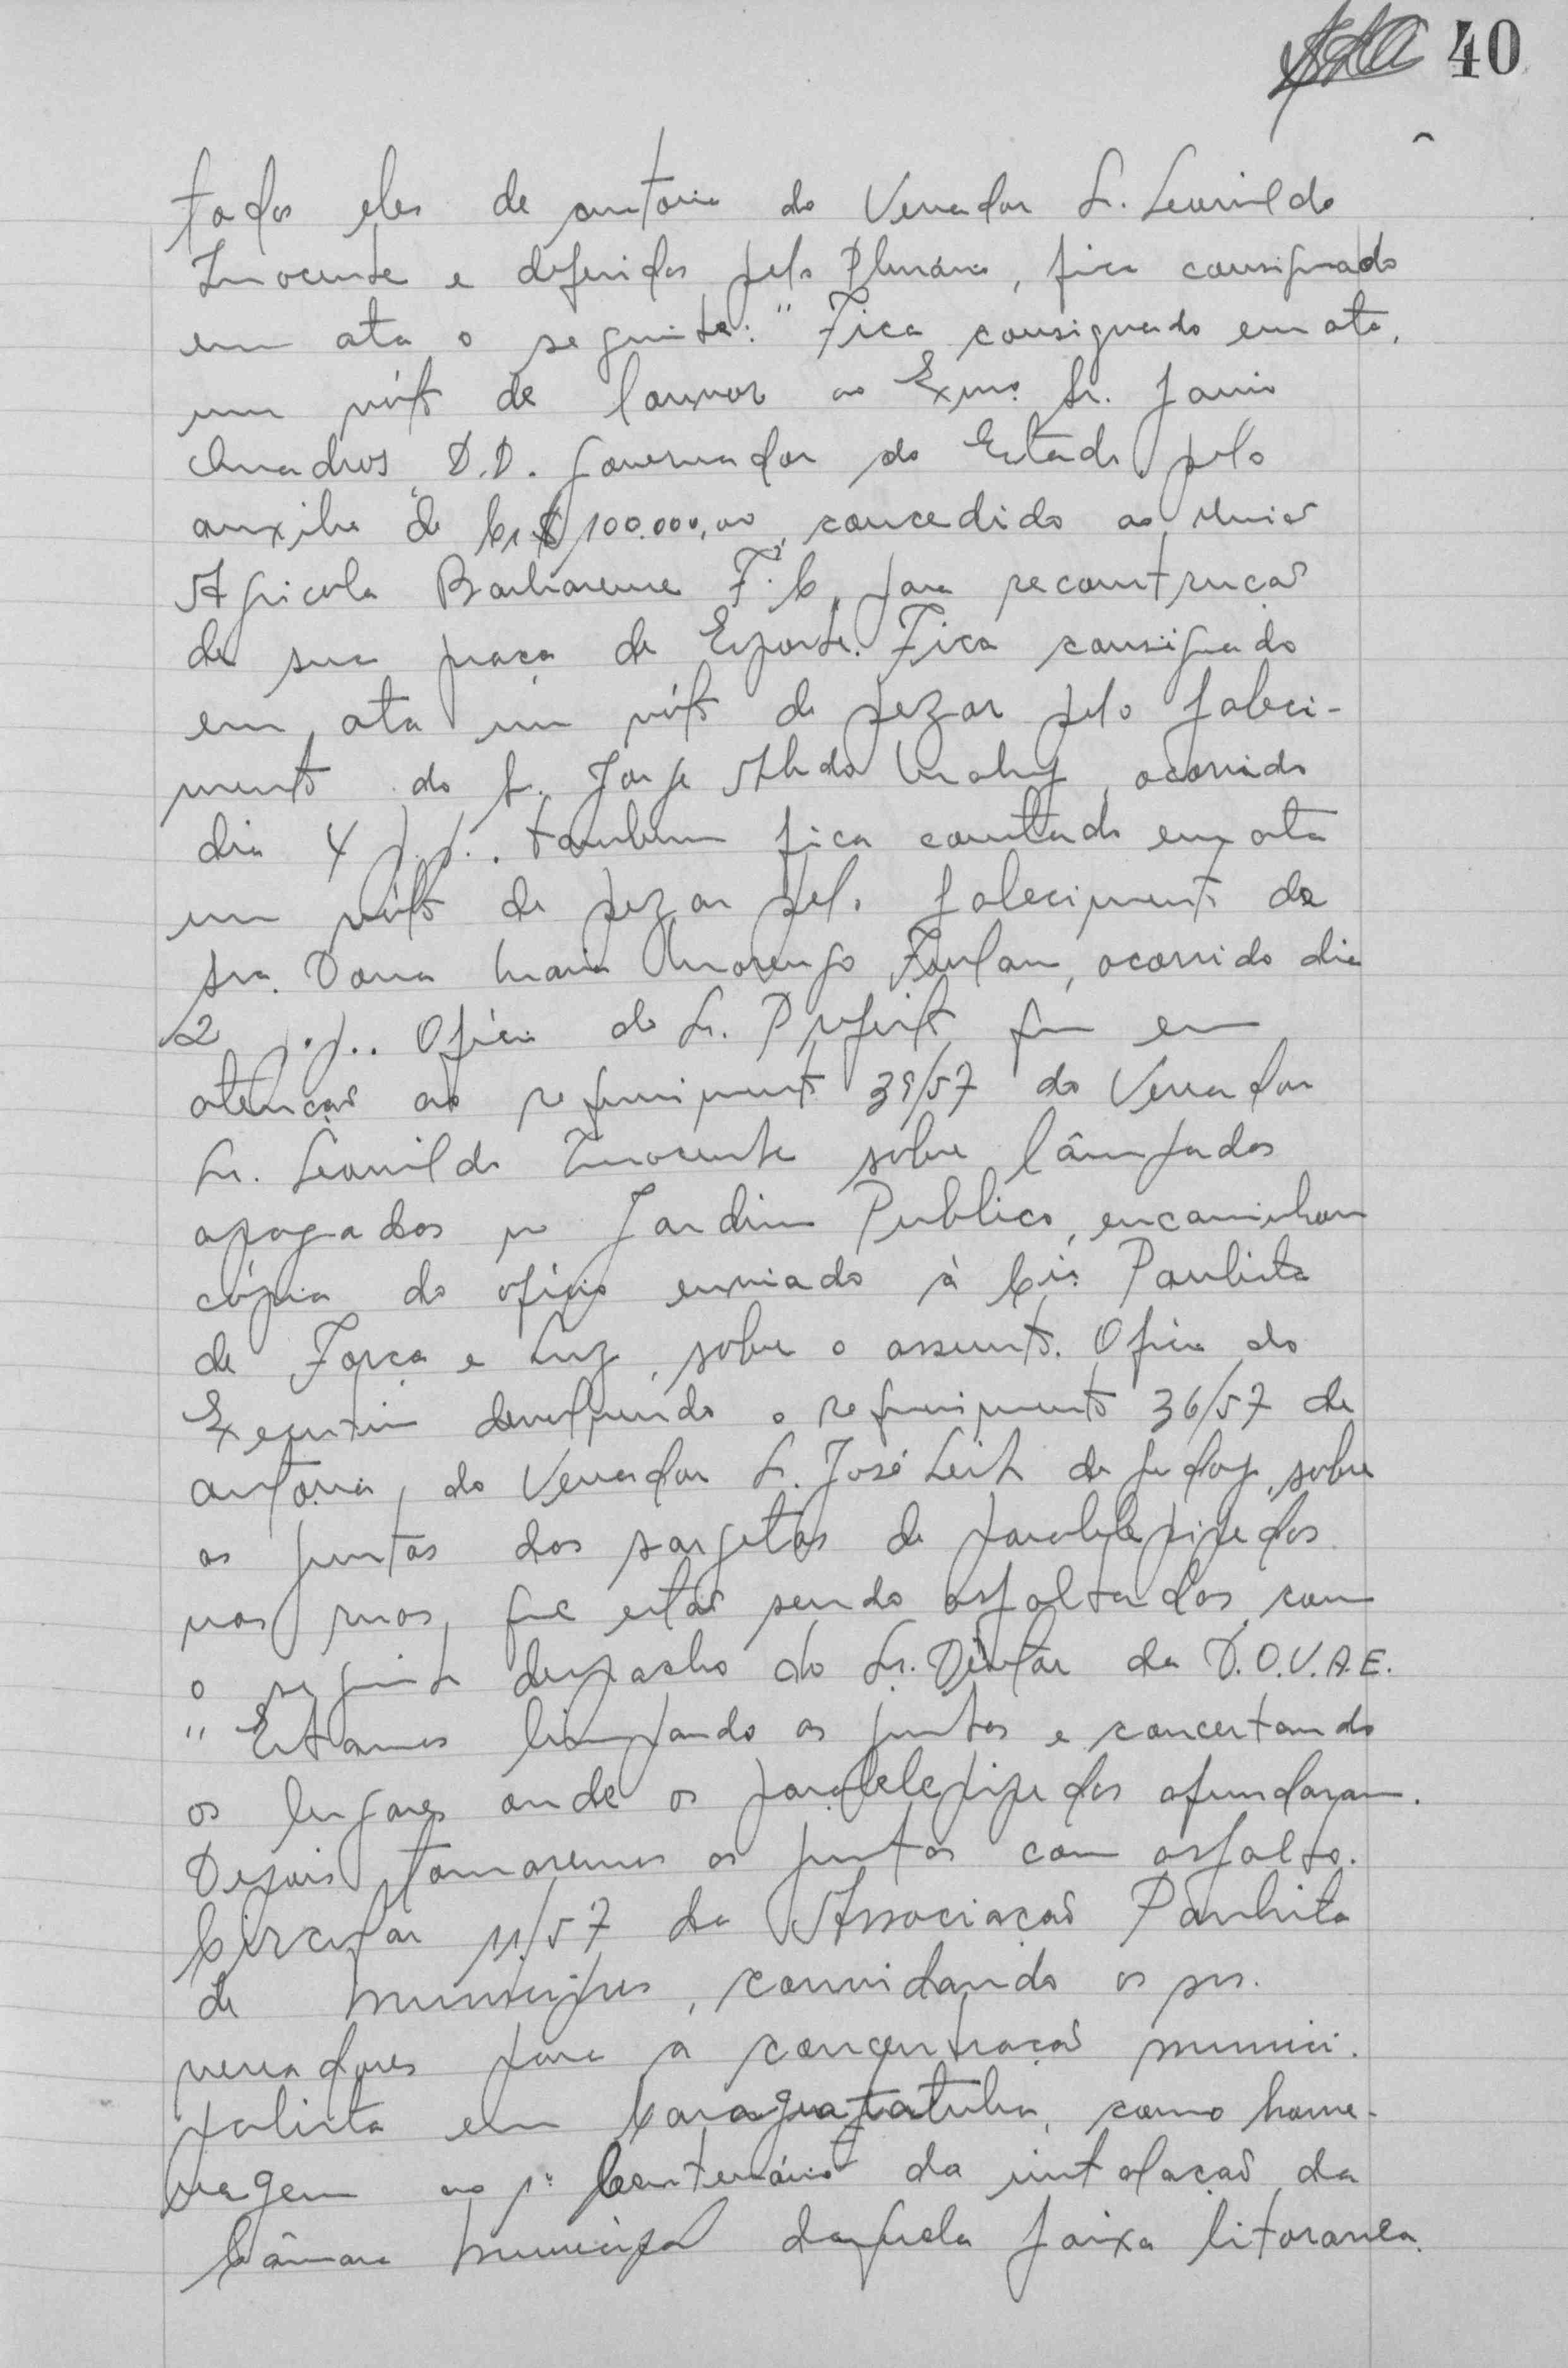 40
todos eles de autoria do Vereador Sr. Leonildo
Inocente e deferidos pelo Plenário, fica consignado
em ata o seguinte: "Fica consignado em ata,
um vóto de louvor ao Exmo. Sr. Janio
Quadros D.D. Governador do Estado pelo
auxilio de Cr$ 100.000,00, concedido ao União
Agricola Barbarense F.C. para reconstrução
de sua praça de Esporte. Fica consignado
em ata um vóto de pezar pelo faleci-
mento do Sr. Jorge Abdo, ocorrido
dia 4 p.p.. também fica constado em ata
um vóto de pezar pelo falecimento da
sra. Dona Maria Marengo Furlan, ocorrido dia
2 p.p.. Oficio do Sr. Prefeito que em
atenção ao requerimento 39/57 do Vereador
Sr. Leonildo Inocente sobre lâmpadas
apagadas no Jardim Publico, encaminham
cópia do ofício enviado à Cia. Paulista
de Força e Luz, sobre o assunto. Oficio do
Executivo devolvendo o requerimento 36/57 de
autoria, do Vereador Sr. José Leite de Godoy, sobre
as juntas das sargetas de paralelepipedos
nas ruas, que estão sendo asfaltadas, com
o seguinte despacho do Sr. Diretor da D.O.V.A.E.
"Estamos limpando as juntas e concertando
os lugares onde os paralelepipedos afundaram.
Depois tomaremos as juntas com asfalto.
Circular 11/57 da Associação Paulista
de Municipios, convidando os srs.
vereadores para a concentração munici-
palista em Caraguatatuba, como home-
nagem ao 1º Centenário da instalação da
Câmara Municipal daquela faixa litoranea.